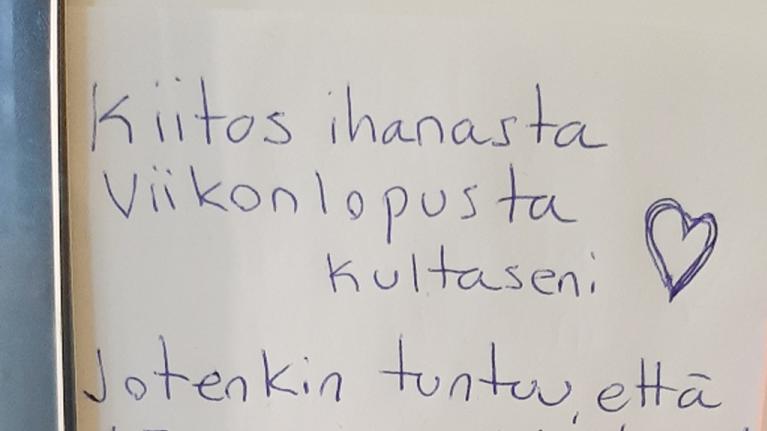 Kiitos ihanasta
Viikonlopusta
kultaseni
Jotenkin tuntuu, että